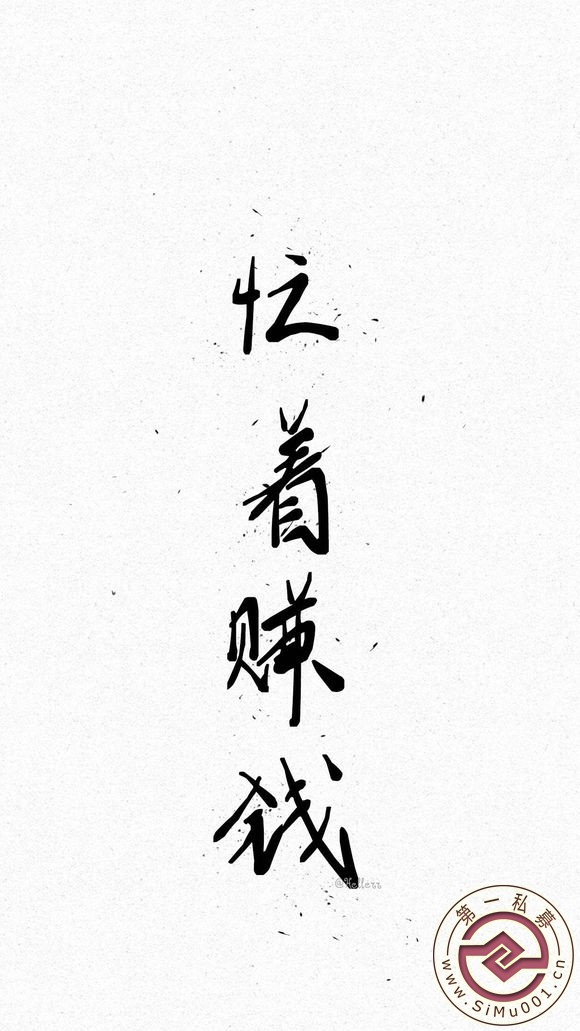 忙着赚钱
@Hellerr
第一私募
www.SiMu001.cn